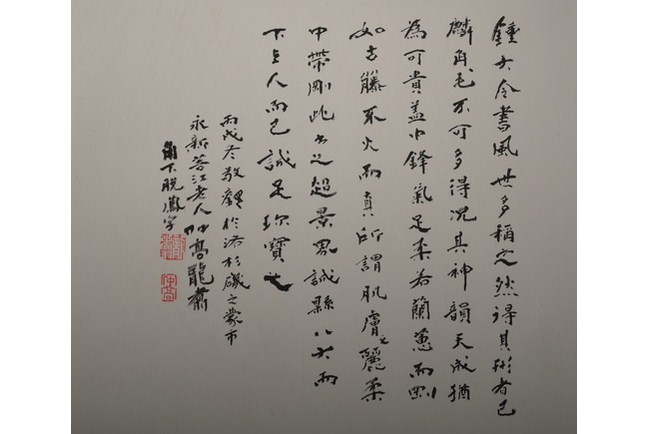 鍾大令書風世多稱之然得其形者已
麟角毛不可多得況其神韻天成猶
為可貴蓋中鋒氣足柔若蘭蕙而剛
如古藤不火而真所謂肌膚之麗柔
中帶剛此書之超景界誠縣八大而
下之人而已誠足珍寶也
丙戌冬敬觀於洛杉磯之蒙市
永新菩江老人仲高龍肅
角下脱鳳字